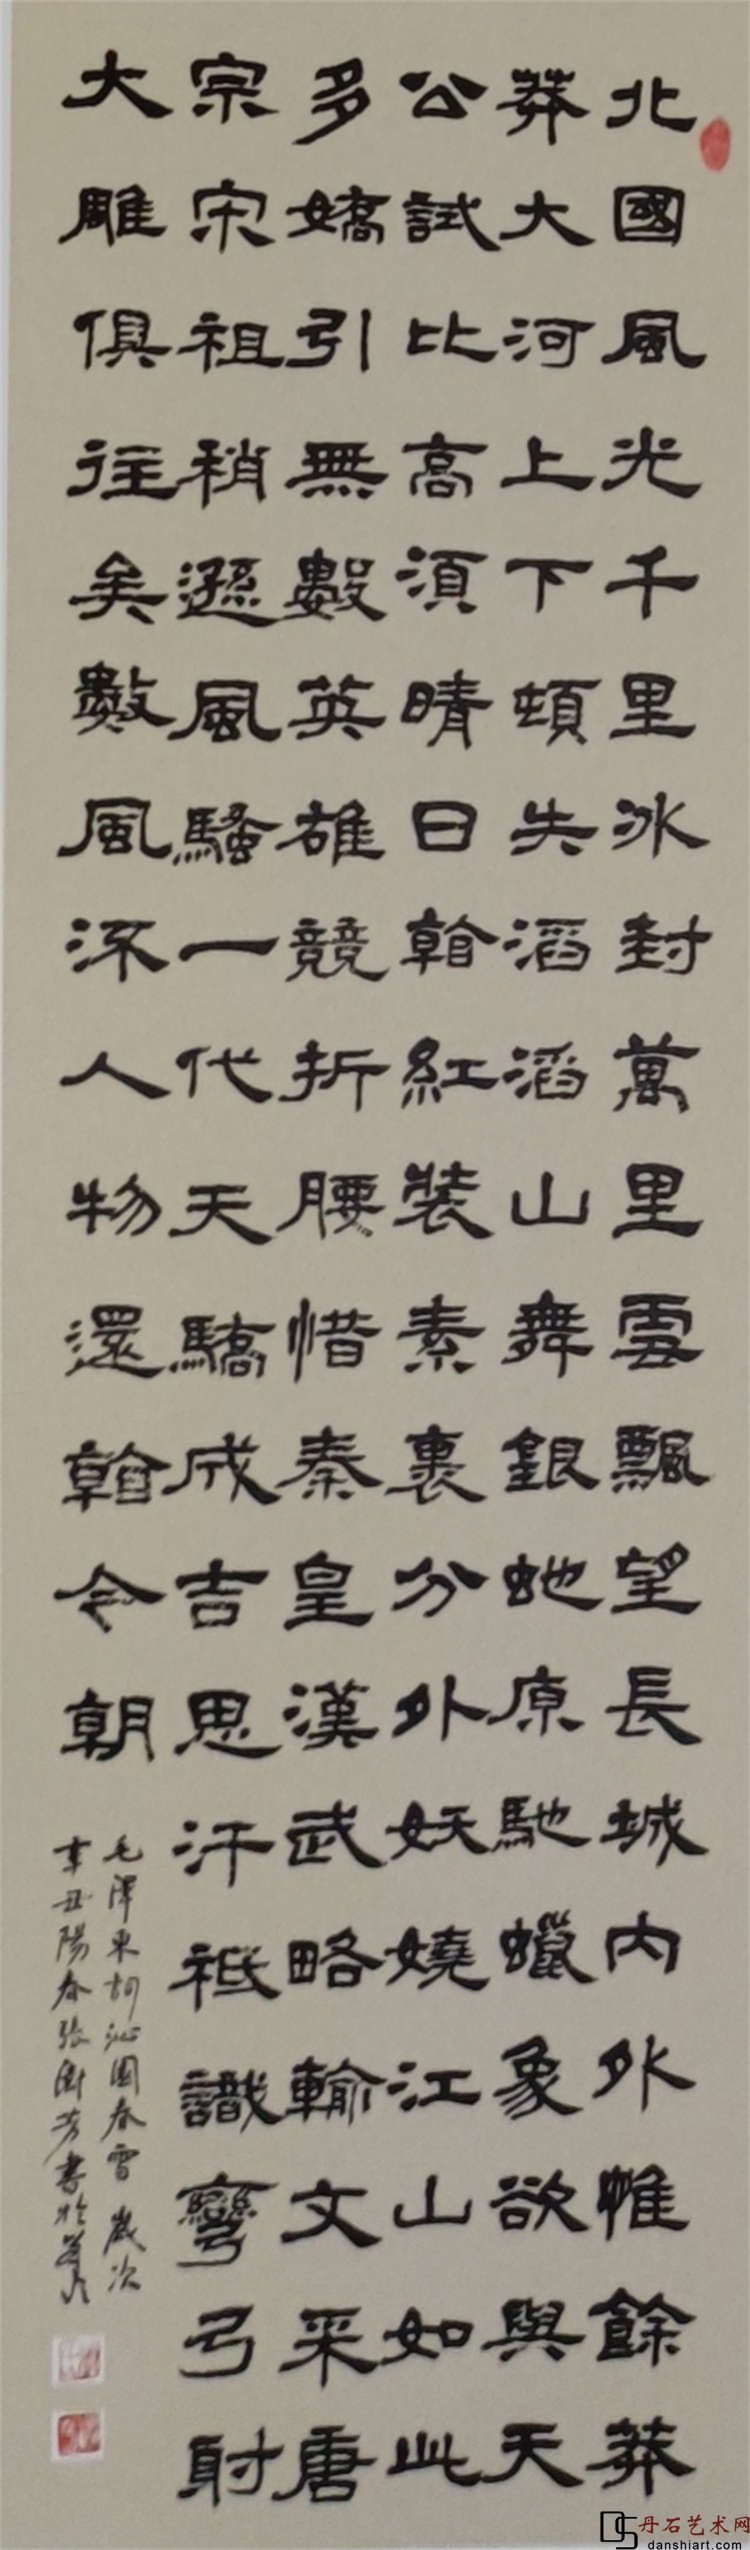 北國風光千里冰封萬里雲飄望長城内外惟餘莽
莽大河上下頓失滔滔山舞銀蛇原馳蠟象欲與天
公試比高須晴日看紅裝素裹分外妖嬈江山如此
多嬌引無數英雄競折腰惜秦皇漢武略輸文采唐
宗宋祖稍遜風騷一代天驕成吉思汗祗識彎弓射
大雕俱往矣數風流人物還看今朝
毛澤東詞沁園春雪 歲次
辛丑陽春張芳書於
丹石艺术网
danshiart.com